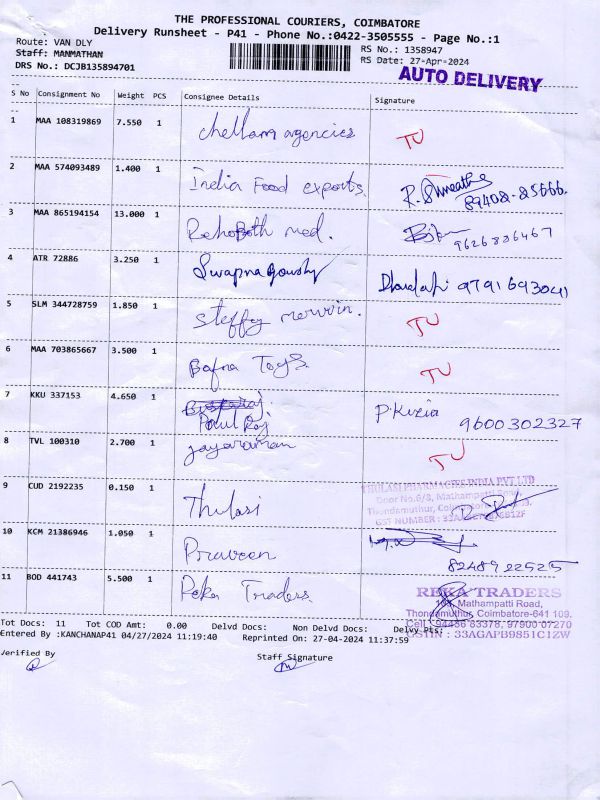 THE PROFESSIONAL COURIERS, COIMBATORE
Delivery Runsheet - P41 - Phone No.:0422-3505555 - Page No.:1
Route: VAN DLY
RS No.: 1358947
Staff: MANMATHAN
RS Date: 27-Apr-2024
DRS No.: DCJB135894701
AUTO DELIVERY
S No Consignment No Weight PCS Consignee Details Signature
1 MAA 108319869 7.550 1 chellam agencies TU
2 MAA 574093489 1.400 1 India Food exports. 89408-25666.
3 MAA 865194154 13.000 1 Rehoboth med. 9626836467
4 ATR 72886 3.250 1 Swapna 9791693041
5 SLM 344728759 1.850 1 steffy TU
6 MAA 703865667 3.500 1 Bafna Toys TU
7 KKU 337153 4.650 1 Paul Raj 9600302327
8 TVL 100310 2.700 1 jayaraman TU
9 CUD 2192235 0.150 1 Thulasi
THULASI PHARMACIES INDIA PVT LTD
Door No.6/8, Mathampatti
Thondamuthur,
GST NUMBER :
10 KCM 21386946 1.050 1 Praveen 8248922525
11 BOD 441743 5.500 1 Reka Traders
REKA TRADERS
Mathampatti Road,
Thondamuthur, Coimbatore-641 109.
Cell : 94436 83378, 97900 07270
GSTIN : 33AGAPB9851C1ZW
Tot Docs: 11 Tot COD Amt: 0.00 Delvd Docs: Non Delvd Docs: Delvy Pts:
Entered By :KANCHANAP41 04/27/2024 11:19:40 Reprinted On: 27-04-2024 11:37:59
Verified By
Staff Signature